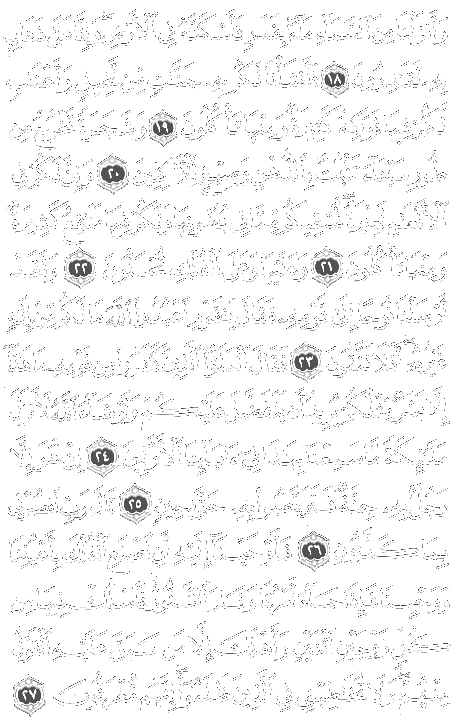 وَأَنزَلْنَا مِنَ ٱلسَّمَآءِ مَآءًۢ بِقَدَرٍ فَأَسْكَنَّٰهُ فِى ٱلْأَرْضِ وَإِنَّا عَلَىٰ ذَهَابٍۭ
بِهِۦ لَقَٰدِرُونَ ١٨ فَأَنشَأْنَا لَكُم بِهِۦ جَنَّٰتٍ مِّن نَّخِيلٍ وَأَعْنَٰبٍ
لَّكُمْ فِيهَا فَوَٰكِهُ كَثِيرَةٌ وَمِنْهَا تَأْكُلُونَ ١٩ وَشَجَرَةً تَخْرُجُ مِن
طُورِ سَيْنَآءَ تَنۢبُتُ بِٱلدُّهْنِ وَصِبْغٍ لِّلْءَاكِلِينَ ٢٠ وَإِنَّ لَكُمْ فِى
ٱلْأَنْعَٰمِ لَعِبْرَةً نُّسْقِيكُم مِّمَّا فِى بُطُونِهَا وَلَكُمْ فِيهَا مَنَٰفِعُ كَثِيرَةٌ
وَمِنْهَا تَأْكُلُونَ ٢١ وَعَلَيْهَا وَعَلَى ٱلْفُلْكِ تُحْمَلُونَ ٢٢ وَلَقَدْ
أَرْسَلْنَا نُوحًا إِلَىٰ قَوْمِهِۦ فَقَالَ يَٰقَوْمِ ٱعْبُدُوا۟ ٱللَّهَ مَا لَكُم مِّنْ إِلَٰهٍ
غَيْرُهُۥٓ أَفَلَا تَتَّقُونَ ٢٣ فَقَالَ ٱلْمَلَؤُا۟ ٱلَّذِينَ كَفَرُوا۟ مِن قَوْمِهِۦ مَا هَٰذَآ
إِلَّا بَشَرٌ مِّثْلُكُمْ يُرِيدُ أَن يَتَفَضَّلَ عَلَيْكُمْ وَلَوْ شَآءَ ٱللَّهُ لَأَنزَلَ
مَلَٰٓئِكَةً مَّا سَمِعْنَا بِهَٰذَا فِىٓ ءَابَآئِنَا ٱلْأَوَّلِينَ ٢٤ إِنْ هُوَ إِلَّا
رَجُلٌۢ بِهِۦ جِنَّةٌ فَتَرَبَّصُوا۟ بِهِۦ حَتَّىٰ حِينٍ ٢٥ قَالَ رَبِّ ٱنصُرْنِى
بِمَا كَذَّبُونِ ٢٦ فَأَوْحَيْنَآ إِلَيْهِ أَنِ ٱصْنَعِ ٱلْفُلْكَ بِأَعْيُنِنَا
وَوَحْيِنَا فَإِذَا جَآءَ أَمْرُنَا وَفَارَ ٱلتَّنُّورُ فَٱسْلُكْ فِيهَا مِن
كُلٍّ زَوْجَيْنِ ٱثْنَيْنِ وَأَهْلَكَ إِلَّا مَن سَبَقَ عَلَيْهِ ٱلْقَوْلُ
مِنْهُمْ وَلَا تُخَٰطِبْنِى فِى ٱلَّذِينَ ظَلَمُوٓا۟ إِنَّهُم مُّغْرَقُونَ ٢٧